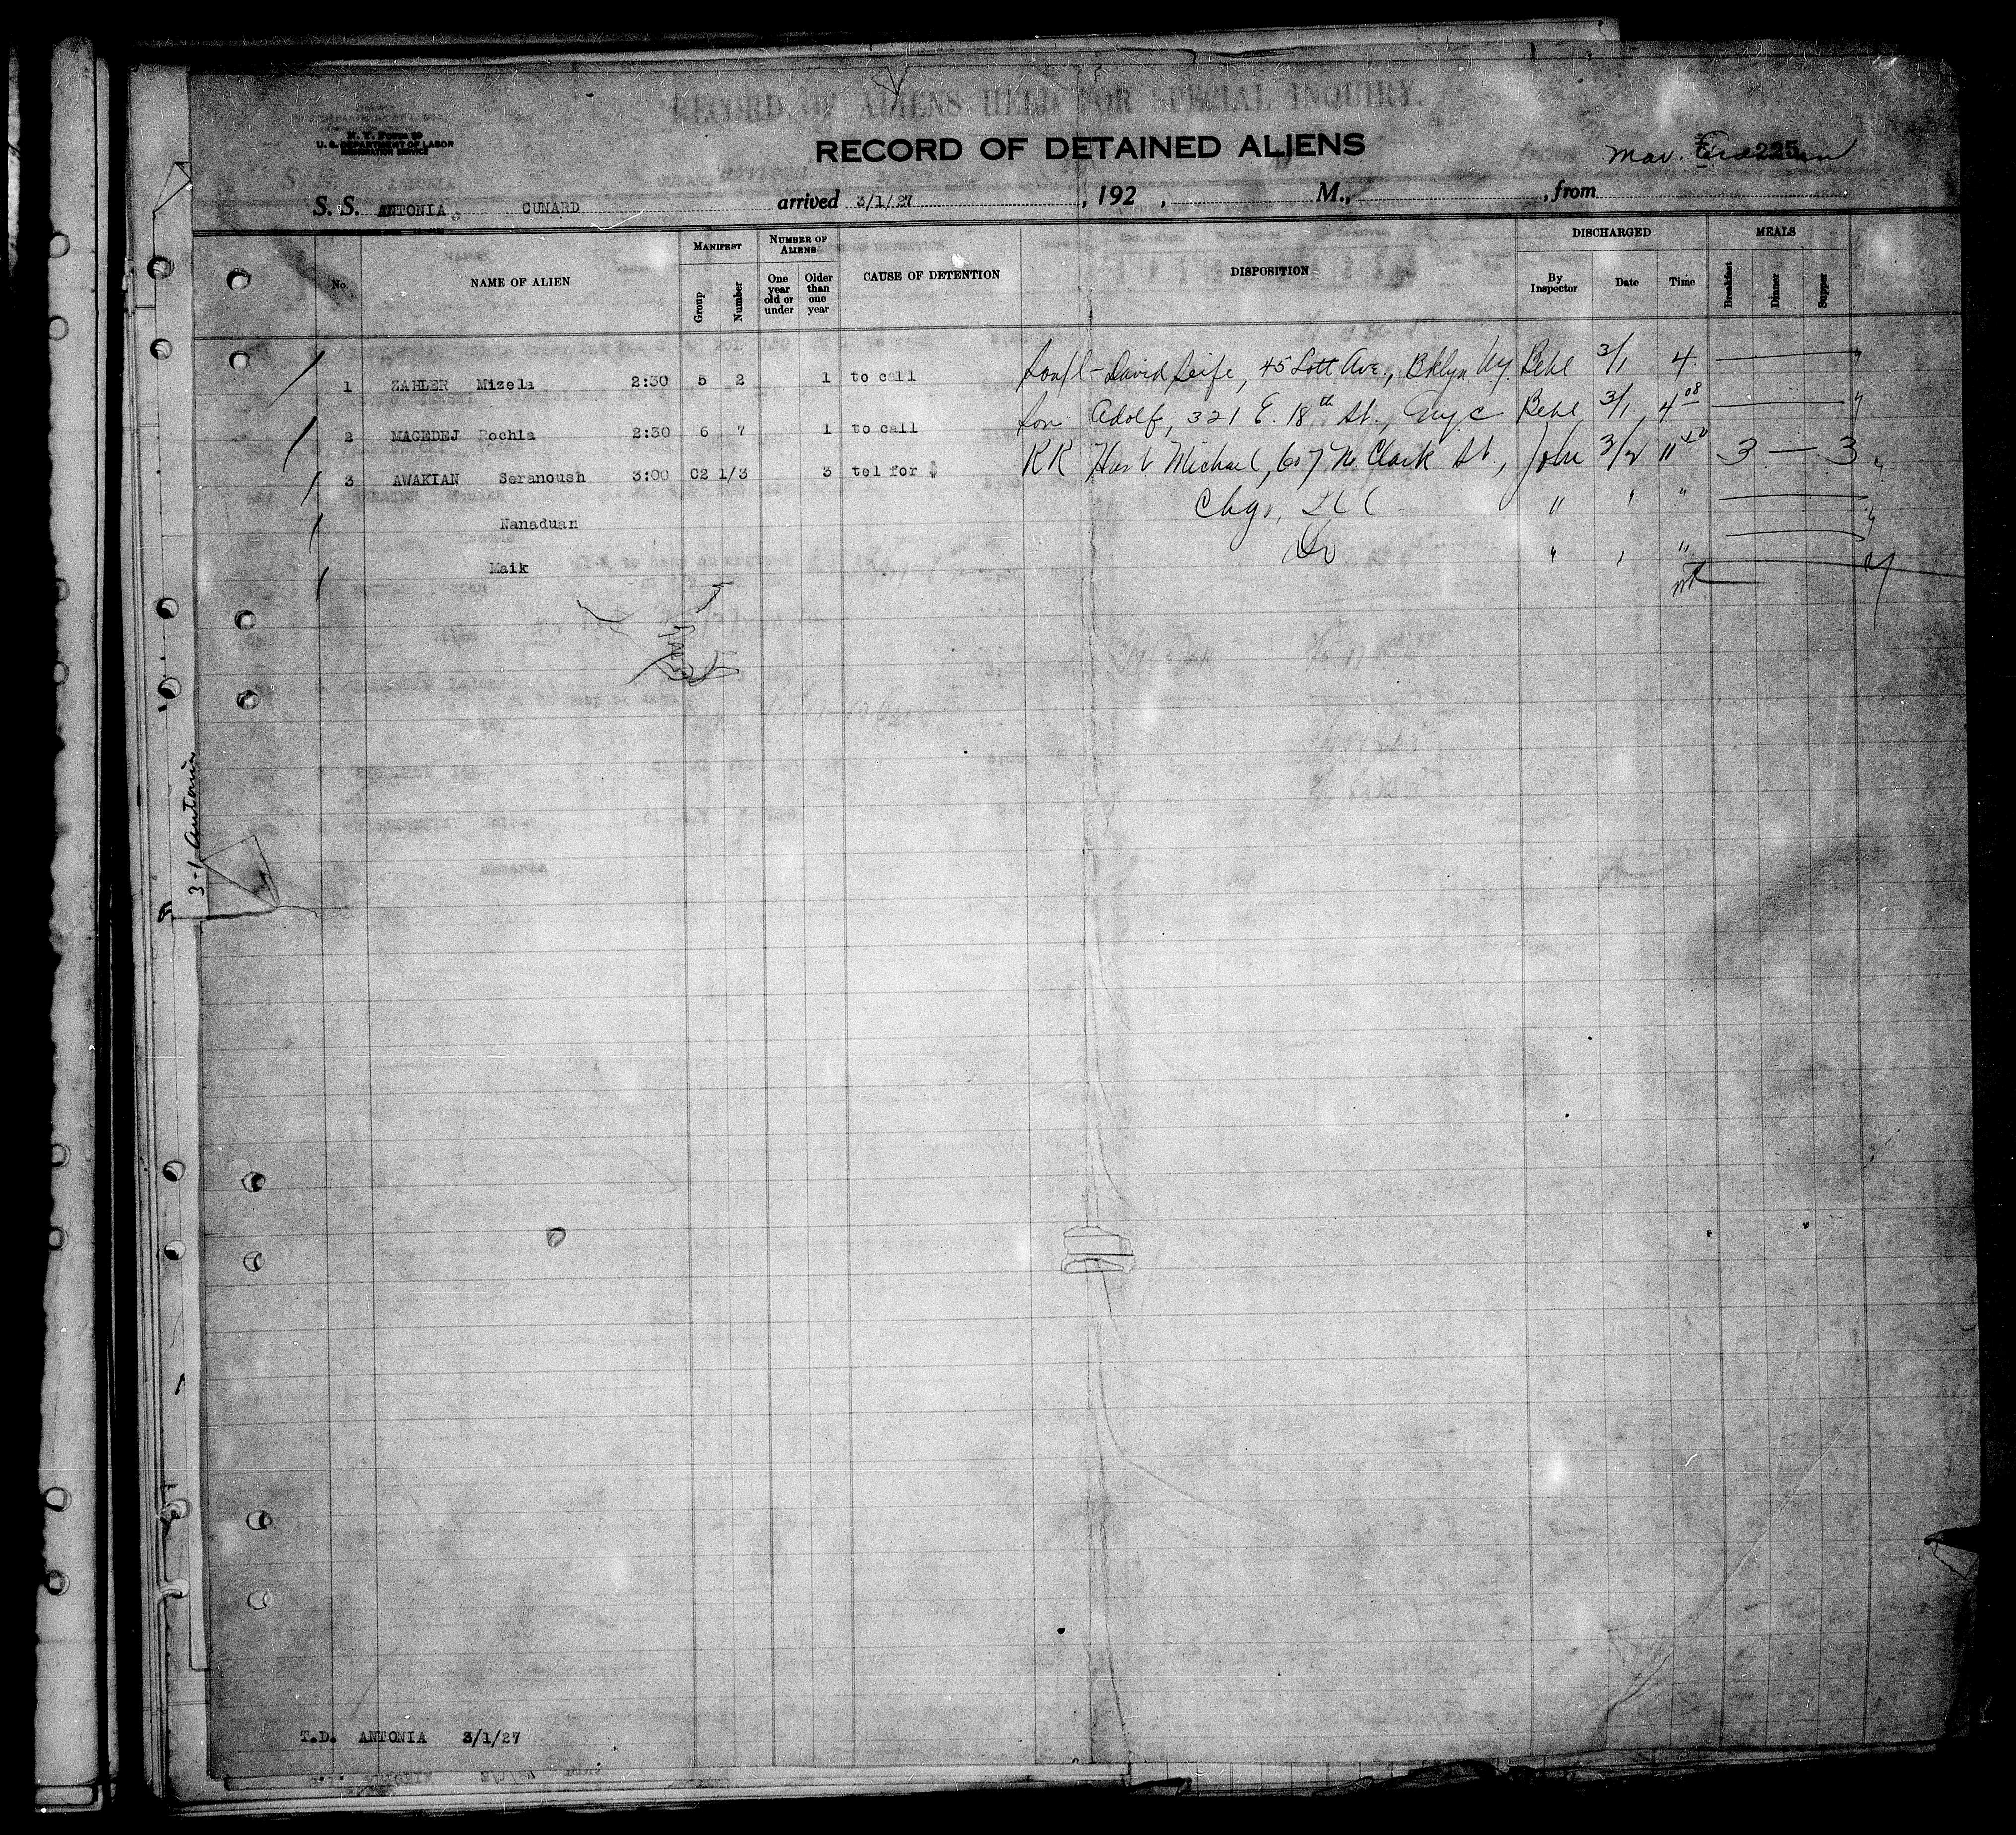 RECORD OF ALIENS HELD FOR SPECIAL INQUIRY.
N. Y. Form 89
U. S. DEPARTMENT OF LABOR
IMMIGRATION SERVICE
RECORD OF DETAINED ALIENS
225
S. S. ANTONIA, CUNARD arrived 3/1/27, 192 , M., , from
No. NAME OF ALIEN MANIFEST Group Number NUMBER OF ALIENS One year old or under Older than one year CAUSE OF DETENTION DISPOSITION DISCHARGED By Inspector Date Time MEALS Breakfast Dinner Supper
1 ZAHLER Mizela 2:30 5 2 1 to call David Seife, 45 Lott Ave, Bklyn NY. Behl 3/1 4
2 MAGEDEJ Rochla 2:30 6 7 1 to call Son Adolf, 321 E. 18th St., NYC Behl 3/1 4 08
3 AWAKIAN Seranoush 3:00 C2 1/3 3 tel for $ RR Husb Michael, 607 N. Clark St., John 3/2 11 40 3 — 3
Nanaduan Chgo, Ill " " "
Maik Do " " "
3-1 Antonia
T.D. ANTONIA 3/1/27